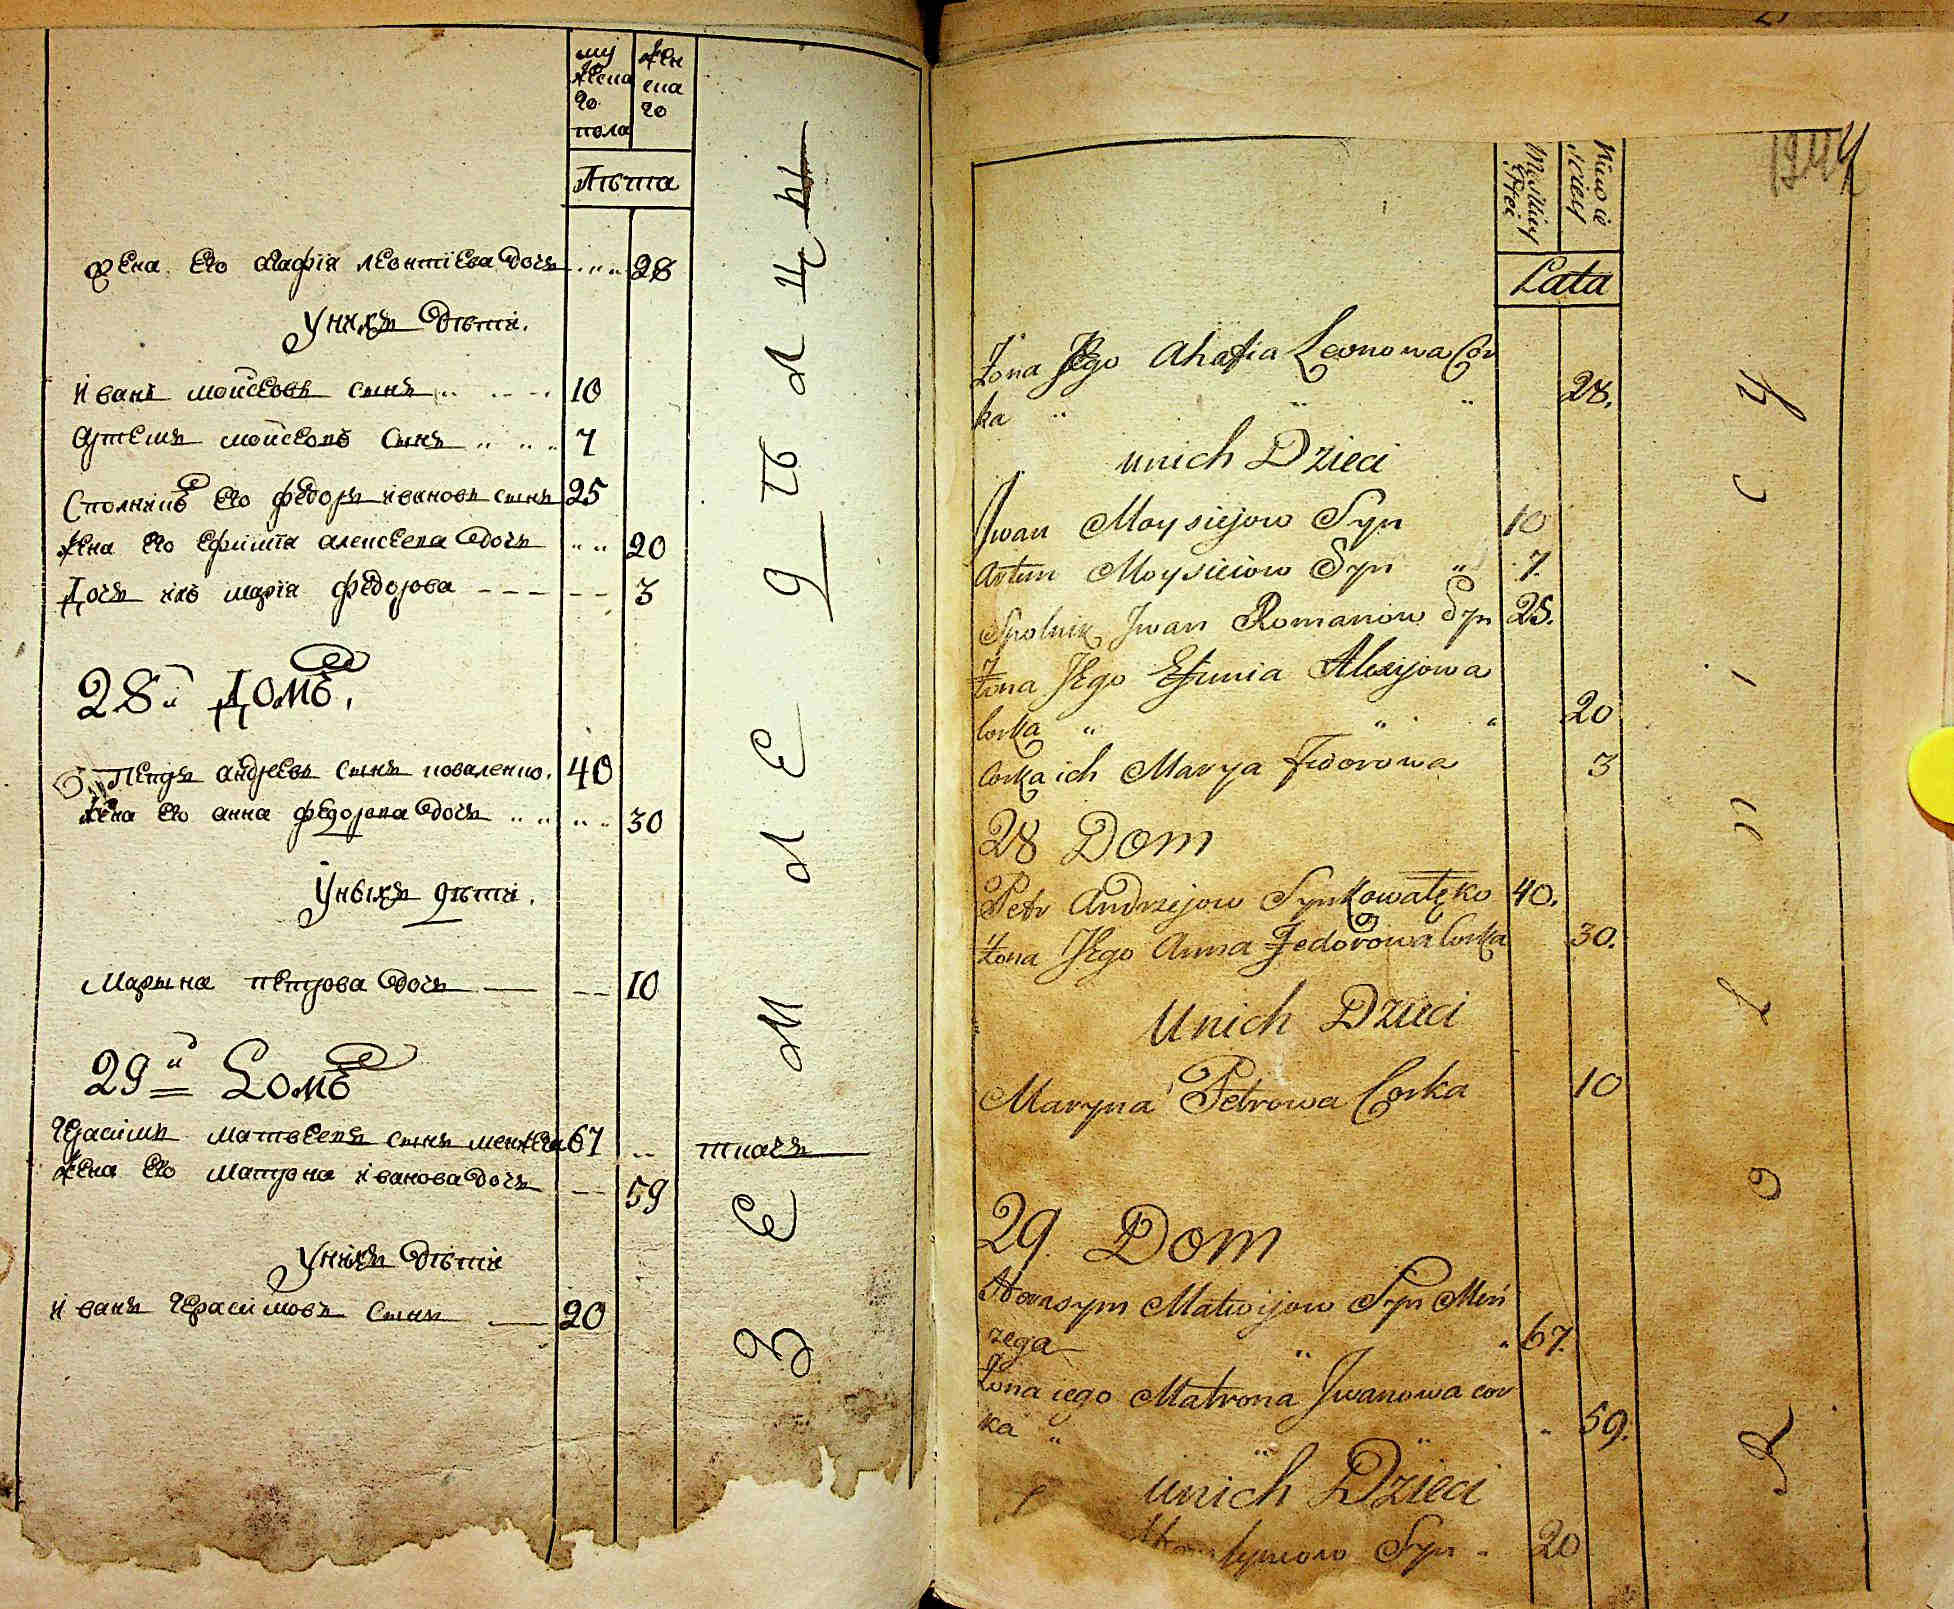 мужеска го пола
женска го
Лѣта
жена его агафія леонтіева дочь 28
У нихъ дѣти.
иванъ мойсеовъ сынъ 10
артемъ мойсеовъ сынъ 7
Сполникъ его федоръ ивановъ сынъ 25
жена его ефимія алексеева дочь 20
дочь ихъ марія федорова 3
28й домъ.
Петръ андреевъ сынъ коваленко. 40
жена его анна федорова дочь 30
У ныхъ дѣти.
Марына петрова дочь 10
29й Домъ
Герасимъ матвеевъ сынъ менжега 67
ткачь
жена его матрона иванова дочь 59
У нихъ дѣти
иванъ Герасимовъ сынъ 20
земледѣлцы
Lata
Żona Jego Ahafia Leonowa Cor
ka 28.
unich Dzieci
Jwan Moysiejow Syn 10
Artem Moysieiow Syn 7.
Spolnik Jwan Romanow Syn 25.
Żona Jego Efimia Alexijowa
Corka 20
Corka ich Marya Fedorowa 3
28 Dom
Petr Andrzejow Syn Kowalęko 40.
Żona Jego Anna Fedorowa Corka 30.
Unich Dzieci
Maryna Petrowa Corka 10
29. Dom
Harasym Matwijow Syn Meń
zega 67.
Żona iego Matrona Jwanowa cor
ka 59.
unich Dzieci
Syn 20
Rolnicy